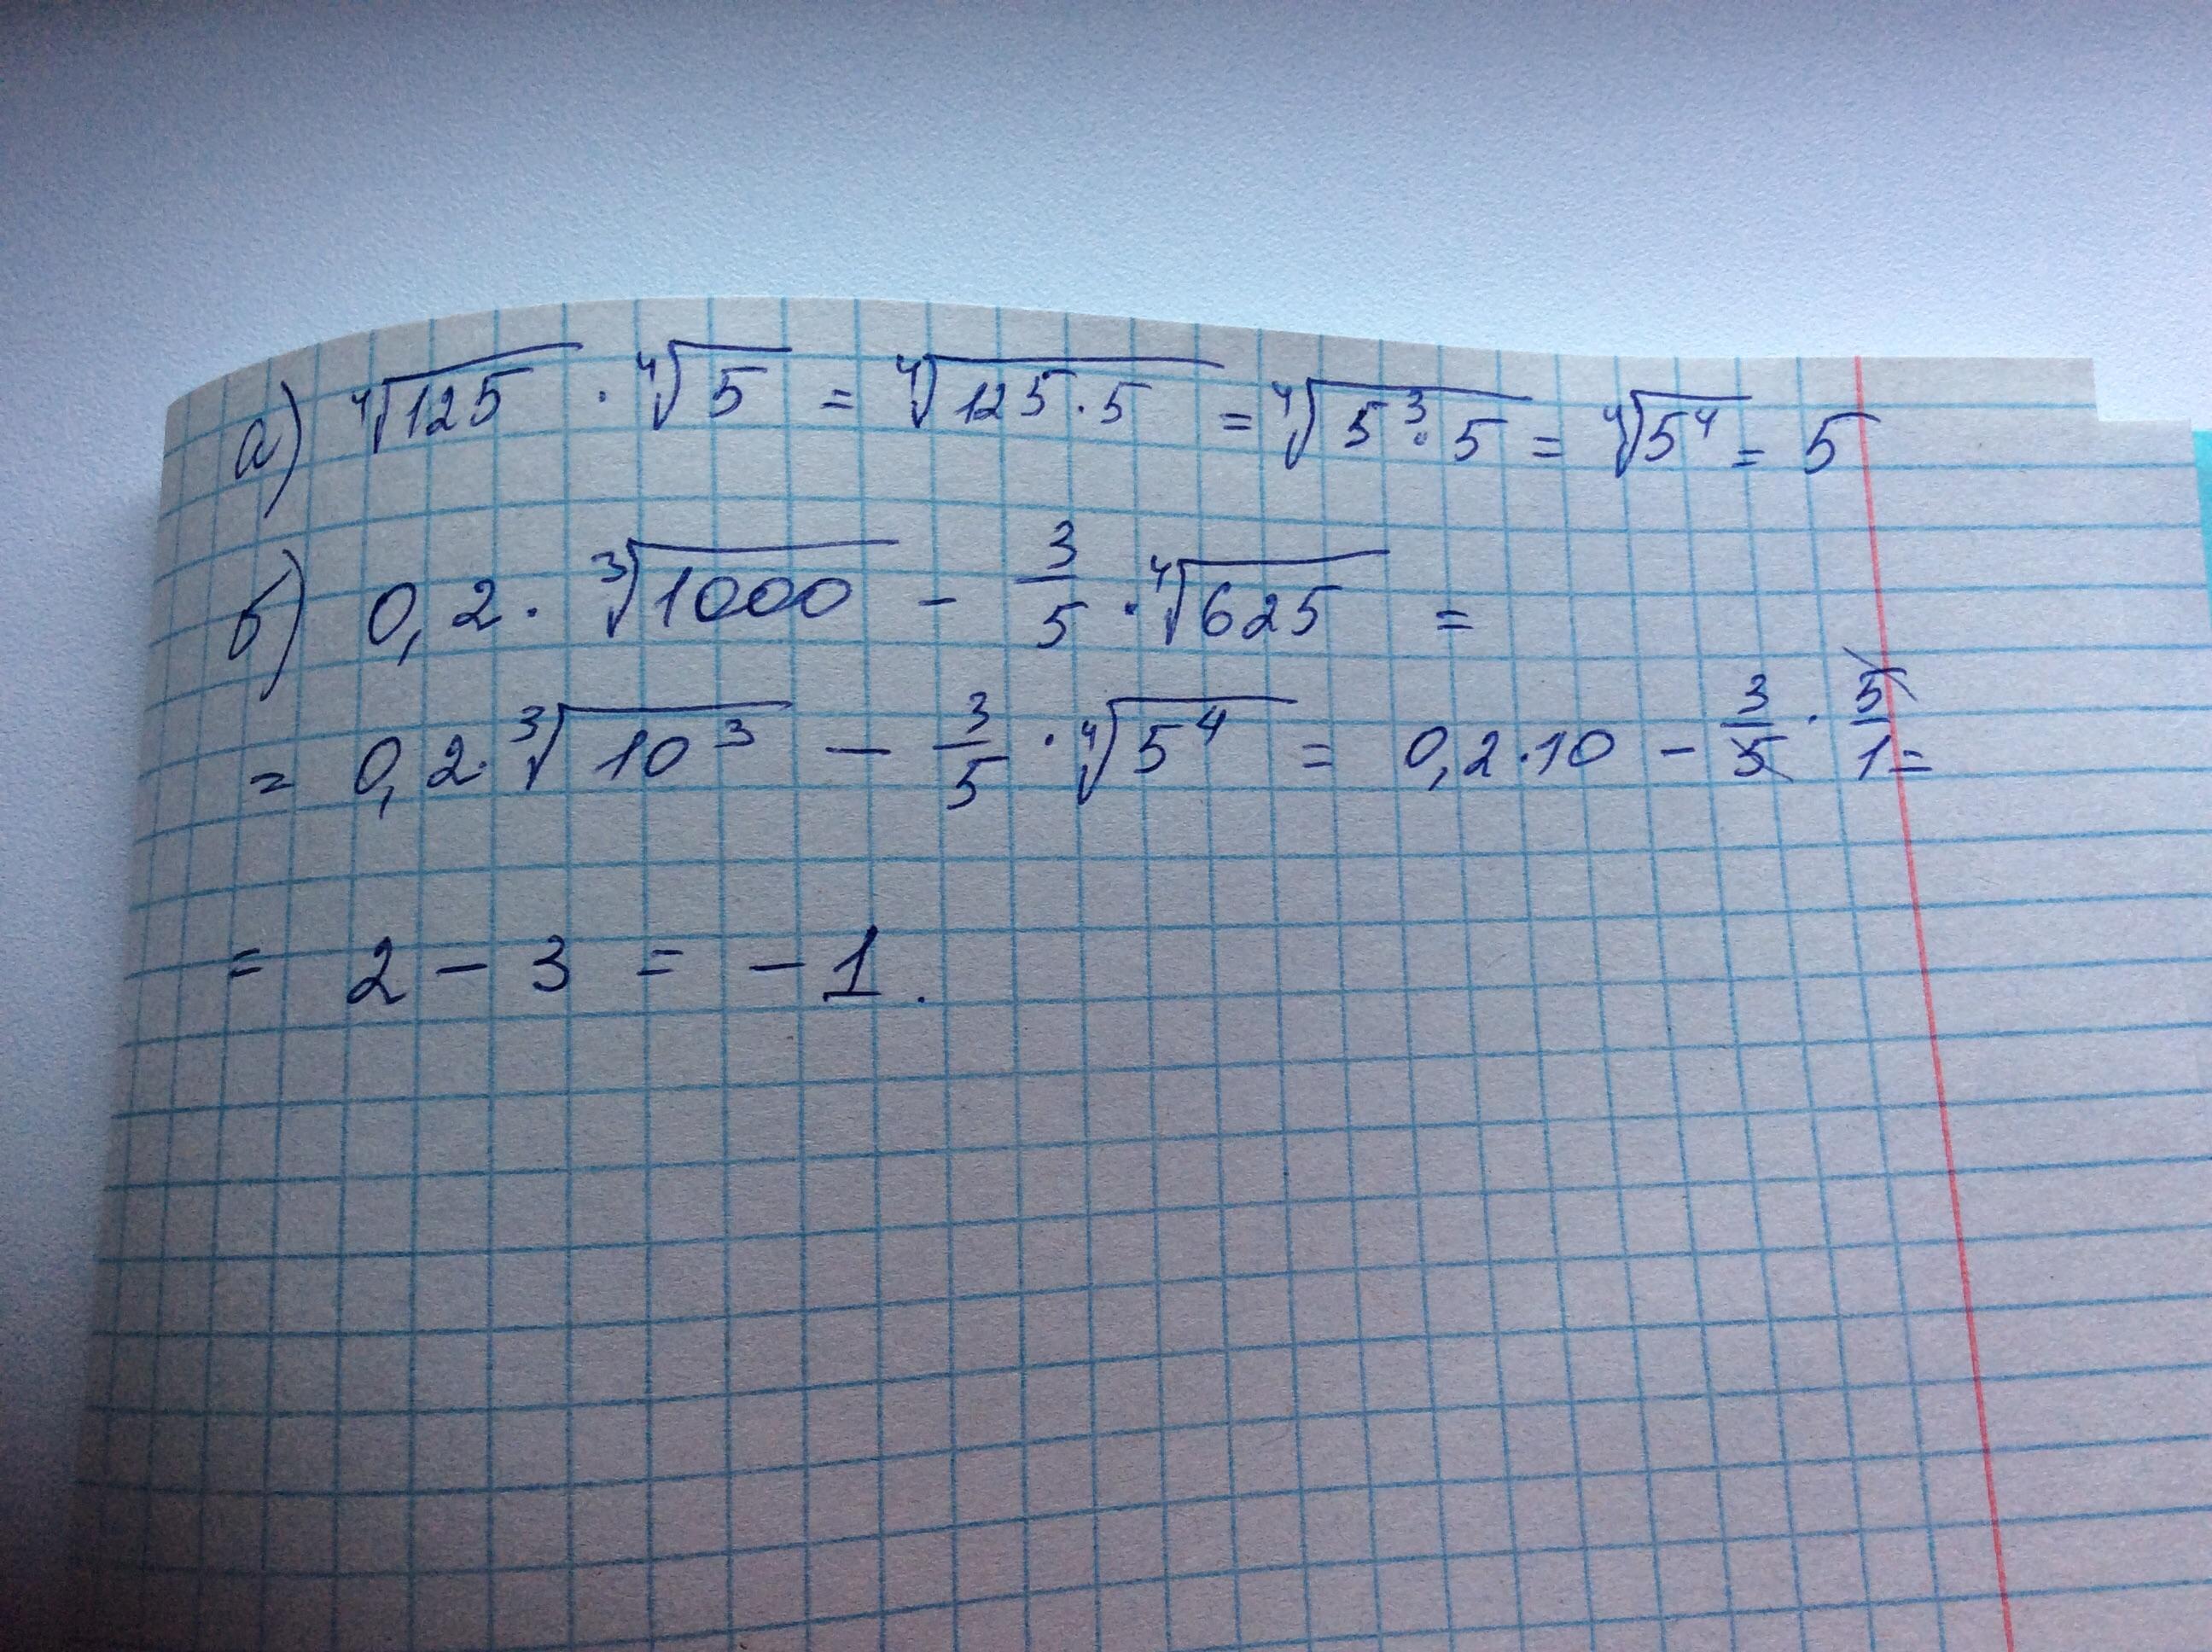 а) ⁴√125 · ⁴√5 = ⁴√125·5 = ⁴√5³·5 = ⁴√5⁴ = 5
б) 0,2 · ³√1000 − 3/5 · ⁴√625 =
= 0,2 · ³√10³ − 3/5 · ⁴√5⁴ = 0,2·10 − 3/5 · 5/1 =
= 2 − 3 = −1.